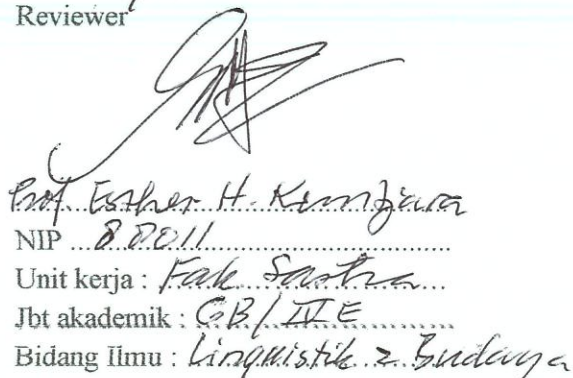 Reviewer
Prof. Esther H. Kuntjara
NIP ... 88011
Unit kerja : Fak Sastra
Jbt akademik : GB / IVE
Bidang Ilmu : Linguistik & Budaya